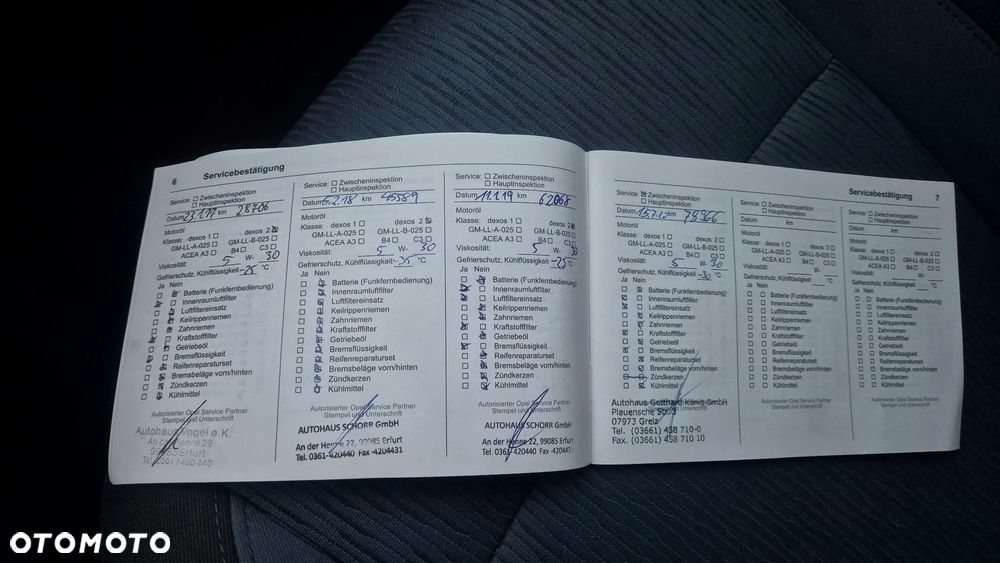 6 Servicebestätigung
Service: Zwischeninspektion
Hauptinspektion
Datum 23.1.17 km 28706
Motoröl
Klasse: dexos 1 dexos 2
GM-LL-A-025 GM-LL-B-025
ACEA A3 B4 C3
Viskosität: 5 W- 30
Gefrierschutz, Kühlflüssigkeit -25 °C
Ja Nein
Batterie (Funkfernbedienung)
Innenraumluftfilter
Luftfiltereinsatz
Keilrippenriemen
Zahnriemen
Kraftstofffilter
Getriebeöl
Bremsflüssigkeit
Reifenreparaturset
Bremsbeläge vorn/hinten
Zündkerzen
Kühlmittel
Autorisierter Opel Service Partner
Stempel und Unterschrift
Autohaus Vogel e.K.
An der Henne 22
99085 Erfurt
Tel. 0361 / 420 440
Service: Zwischeninspektion
Hauptinspektion
Datum 5.2.18 km 45559
Motoröl
Klasse: dexos 1 dexos 2
GM-LL-A-025 GM-LL-B-025
ACEA A3 B4 C3
Viskosität: 5 W- 30
Gefrierschutz, Kühlflüssigkeit -25 °C
Ja Nein
Batterie (Funkfernbedienung)
Innenraumluftfilter
Luftfiltereinsatz
Keilrippenriemen
Zahnriemen
Kraftstofffilter
Getriebeöl
Bremsflüssigkeit
Reifenreparaturset
Bremsbeläge vorn/hinten
Zündkerzen
Kühlmittel
Autorisierter Opel Service Partner
Stempel und Unterschrift
AUTOHAUS SCHORR GmbH
An der Henne 22, 99085 Erfurt
Tel. 0361-420440 Fax -4204431
Service: Zwischeninspektion
Hauptinspektion
Datum 11.1.19 km 62068
Motoröl
Klasse: dexos 1 dexos 2
GM-LL-A-025 GM-LL-B-025
ACEA A3 B4 C3
Viskosität: 5 W- 30
Gefrierschutz, Kühlflüssigkeit -25 °C
Ja Nein
Batterie (Funkfernbedienung)
Innenraumluftfilter
Luftfiltereinsatz
Keilrippenriemen
Zahnriemen
Kraftstofffilter
Getriebeöl
Bremsflüssigkeit
Reifenreparaturset
Bremsbeläge vorn/hinten
Zündkerzen
Kühlmittel
Autorisierter Opel Service Partner
Stempel und Unterschrift
AUTOHAUS SCHORR GmbH
An der Henne 22, 99085 Erfurt
Tel. 0361-420440 Fax -4204431
Servicebestätigung 7
Service: Zwischeninspektion
Hauptinspektion
Datum km 79966
Motoröl
Klasse: dexos 1 dexos 2
GM-LL-A-025 GM-LL-B-025
ACEA A3 B4 C3
Viskosität: 5 W- 30
Gefrierschutz, Kühlflüssigkeit -30 °C
Ja Nein
Batterie (Funkfernbedienung)
Innenraumluftfilter
Luftfiltereinsatz
Keilrippenriemen
Zahnriemen
Kraftstofffilter
Getriebeöl
Bremsflüssigkeit
Reifenreparaturset
Bremsbeläge vorn/hinten
Zündkerzen
Kühlmittel
Autorisierter Opel Service Partner
Stempel und Unterschrift
Autohaus Gotthard König GmbH
Plauensche Str.
07973 Greiz
Tel. (03661) 458 710-0
Fax. (03661) 458 710 10
Service: Zwischeninspektion
Hauptinspektion
Datum km
Motoröl
Klasse: dexos 1 dexos 2
GM-LL-A-025 GM-LL-B-025
ACEA A3 B4 C3
Viskosität: W-
Gefrierschutz, Kühlflüssigkeit °C
Ja Nein
Batterie (Funkfernbedienung)
Innenraumluftfilter
Luftfiltereinsatz
Keilrippenriemen
Zahnriemen
Kraftstofffilter
Getriebeöl
Bremsflüssigkeit
Reifenreparaturset
Bremsbeläge vorn/hinten
Zündkerzen
Kühlmittel
Autorisierter Opel Service Partner
Stempel und Unterschrift
Service: Zwischeninspektion
Hauptinspektion
Datum km
Motoröl
Klasse: dexos 1 dexos 2
GM-LL-A-025 GM-LL-B-025
ACEA A3 B4 C3
Viskosität: W-
Gefrierschutz, Kühlflüssigkeit °C
Ja Nein
Batterie (Funkfernbedienung)
Innenraumluftfilter
Luftfiltereinsatz
Keilrippenriemen
Zahnriemen
Kraftstofffilter
Getriebeöl
Bremsflüssigkeit
Reifenreparaturset
Bremsbeläge vorn/hinten
Zündkerzen
Kühlmittel
Autorisierter Opel Service Partner
Stempel und Unterschrift
OTOMOTO